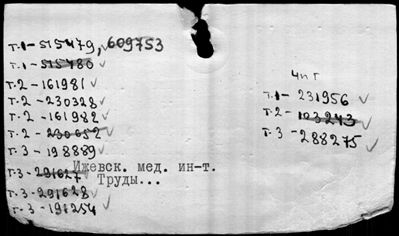 т.1-515479, 609753
т.1-515480
т.2-161981
т.2-230328
т.2-161982
т.2-230652
т.3-198889
Ижевск. мед. ин-т.
Труды...
т.3-291627
т.3-291628
т.3-198254
чпг
т.1-231956
т.2-103243
т.3-288275